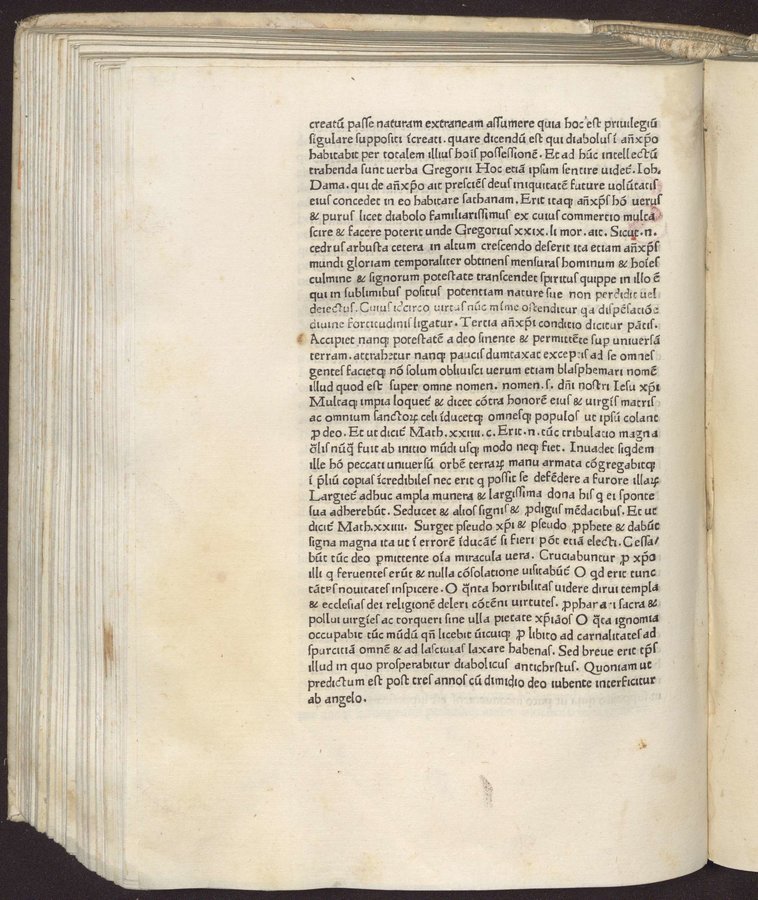 creatū passe naturam extraneam assumere quia hoc est priuilegiū
sīgulare suppositi īcreati. quare dicendū est qui diabolus ī añxp̄o
habitabit per totalem illius hoīs possessionē. Et ad hūc intellectū
trahenda sunt verba Gregorii Hoc etiā ipsum sentire uidet᷑. Ioh.
Dama. qui de añxp̄o ait presciēs deus iniquitatē future uolūtatis
eius concedet in eo habitare sathanam. Erit itaqꝫ añxp̄s hō uerus
& purus licet diabolo familiarissimus ex cuius commercio multa
scire & facere poterit unde Gregorius xxix. li mor. ait. Sicut .n.
cedrus arbusta cetera in altum crescendo deserit ita etiam añxp̄s
mundi gloriam temporaliter obtinens mensuras hominum & hoīes
culmine & signorum potestate transcendet spiritus quippe in illo ē
qui in sublimibus positus potentiam nature sue non perdidit uel
deiectus. Cuius idcirco uirtus nūc mīme ostenditur qa dispēsatiōe
diuine fortitudinis ligatur. Tertia añxp̄i conditio dicitur p̄atis.
Accipiet nanqꝫ potestatē a deo sinente & permittēte sup uniuersā
terram. attrahetur nanqꝫ paucis dumtaxat exceptis ad se omnes
gentes facietqꝫ nō solum obliuisci uerum etiam blasphemari nomē
illud quod est super omne nomen. nomen .s. dn̄i nostri Iesu xp̄i
Multaqꝫ impia loquet᷑ & dicet cōtra honorē eius & uirgīs matris
ac omnium sanctoꝝ celi īducetqꝫ omnesqꝫ populos ut ipsū colant
ꝓ deo. Et ut dicit᷑ Math. xxiiii. c. Erit .n. tūc tribulatio magna
q̄lis nūq̄ fuit ab initio mūdi usqꝫ modo neqꝫ fiet. Inuadet siqdem
ille hō peccati uniuersū orbē terraꝝ manu armata cōgregabitqꝫ
ī p̄liū copias īcredibiles nec erit q possit se defēdere a furore illaꝝ
Largiet᷑ adhuc ampla munera & largissima dona his q ei sponte
sua adherebūt. Seducet & alios signis & ꝓdigiis mēdacibus. Et ut
dicit᷑ Math. xxiiii. Surget pseudo xp̄i & pseudo ꝓphete & dabūt
signa magna ita ut ī errorē īducāt᷑ si fieri pōt etiā electi. Cessa/
būt tūc deo ꝑmittente oīa miracula uera. Cruciabuntur ꝓ xp̄o
illi q feruentes erūt & nulla cōsolatione uisitabūt᷑ O qd erit tunc
tātes nouitates inspicere. O q̄nta horribilitas uidere dirui templa
& ecclesias dei religionē deleri cōtēni uirtutes. ꝓphanari sacra &
pollui uirgīes ac torqueri sine ulla pietate xp̄iāos O q̄ta ignomia
occupabit tūc mūdū qn̄ licebit uicuiqꝫ ꝓ libito ad carnalitates ad
spurcitiā omnē & ad lasciuias laxare habenas. Sed breue erit tp̄s
illud in quo prosperabitur diabolicus antichrstus. Quoniam ut
predictum est post tres annos cū dimidio deo iubente interficitur
ab angelo.